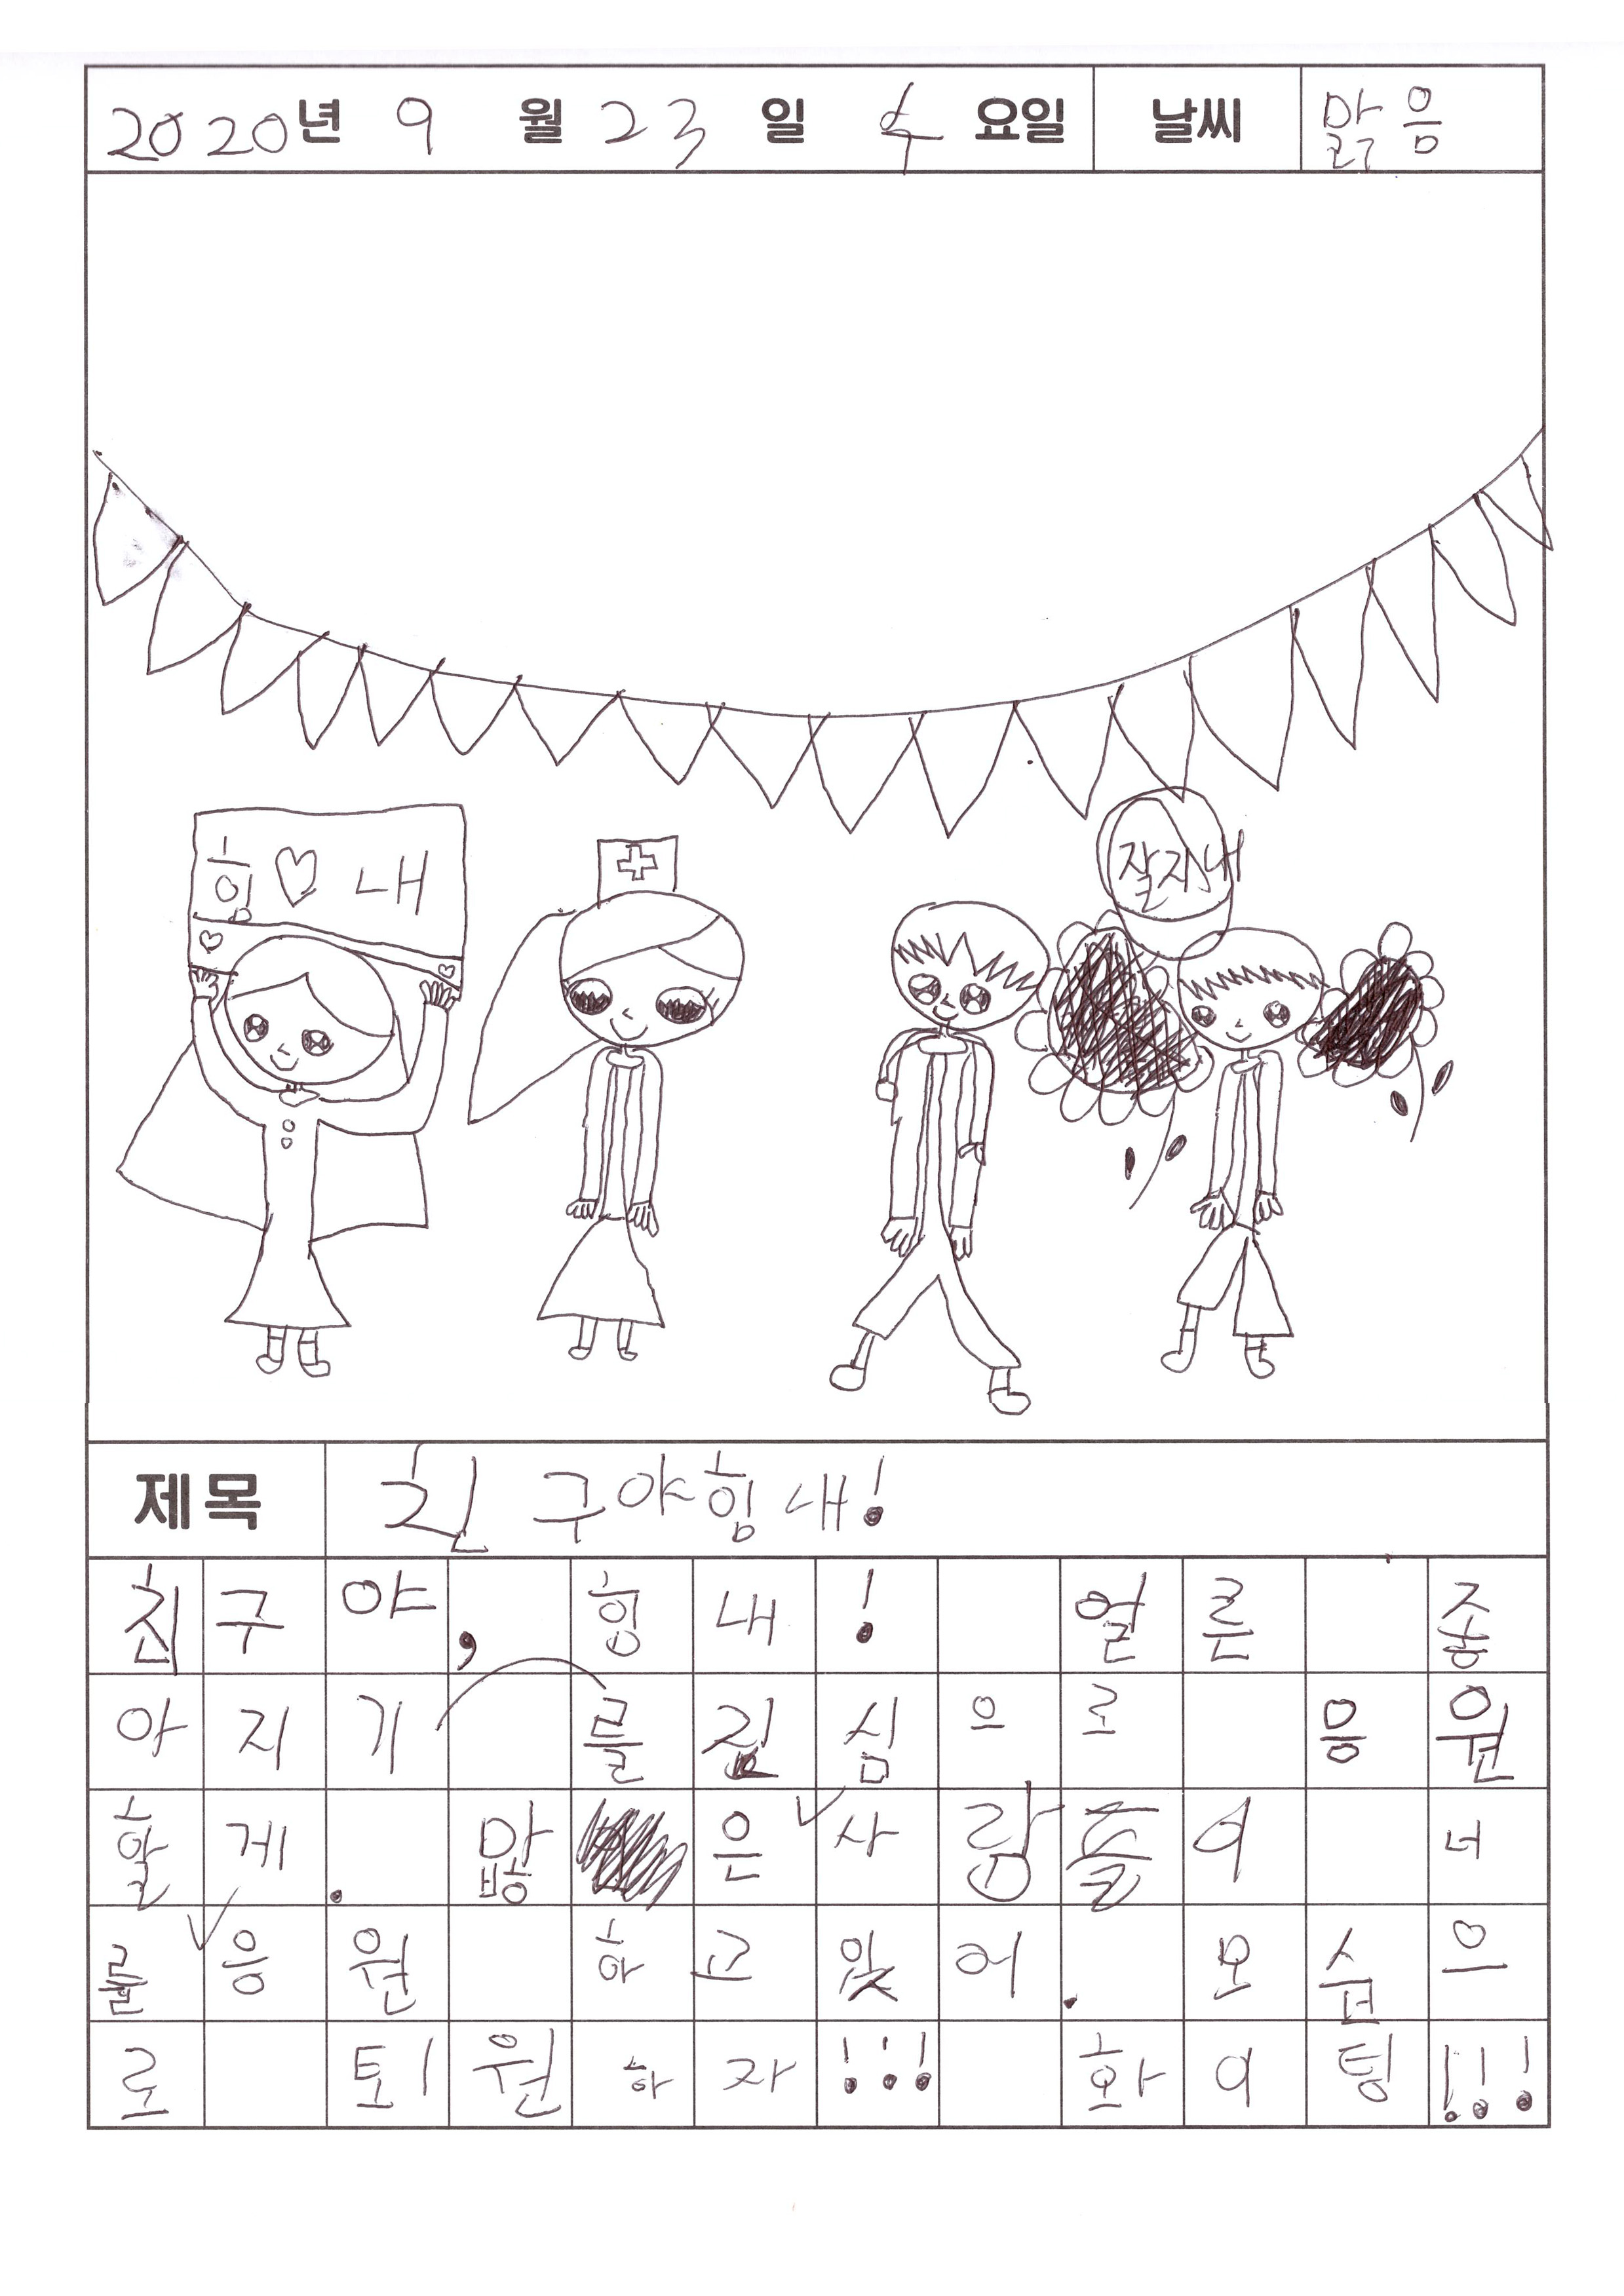 2020년 9 월 23 일 수 요일 날씨 맑음
힘♡내
잘지내
제목 친구야힘내!
친구야, 힘내! 얼른 좋
아지기를 진심으로 응원
할게. 많은 사람들이 너
를 응원 하고 있어. 모습으
로 퇴원하자!!! 화이팅!!!